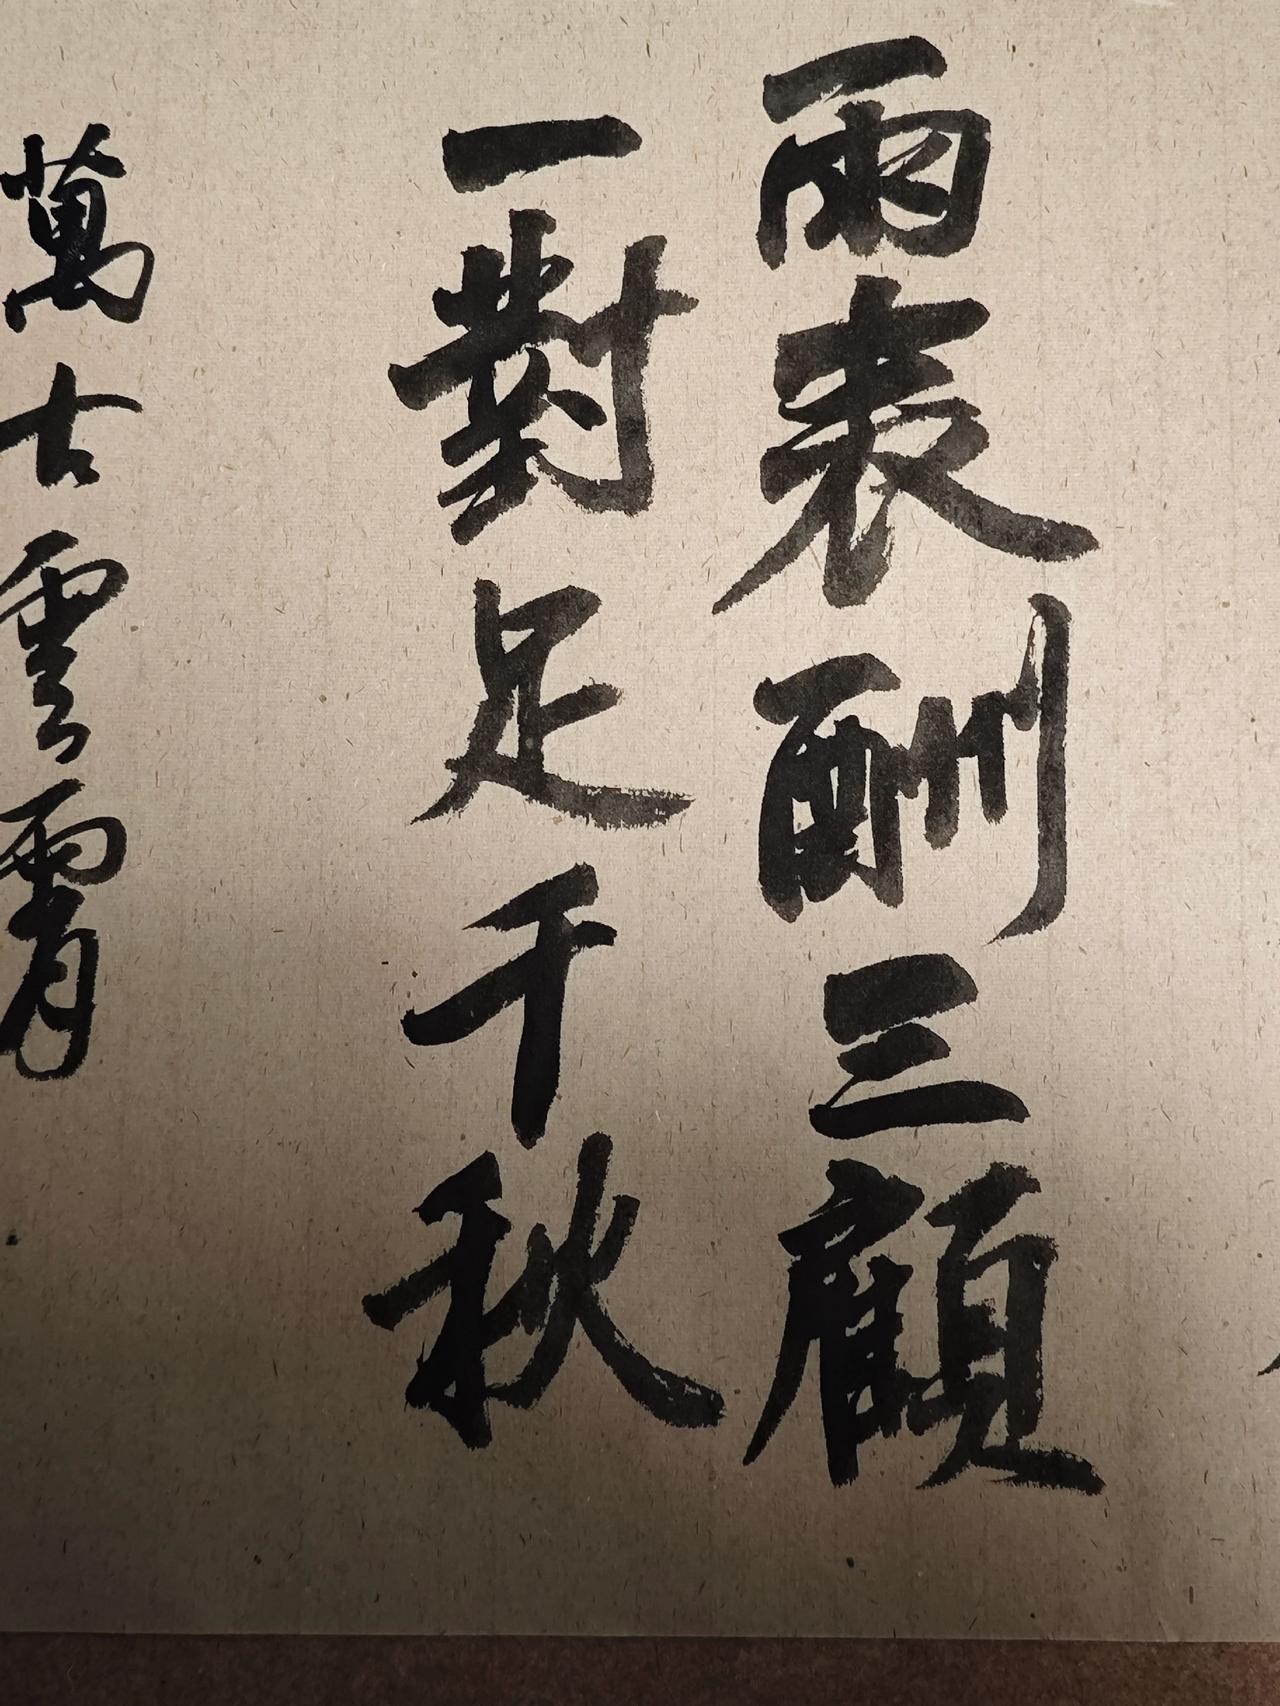 兩表酬三顧
一對足千秋
萬古雲霄